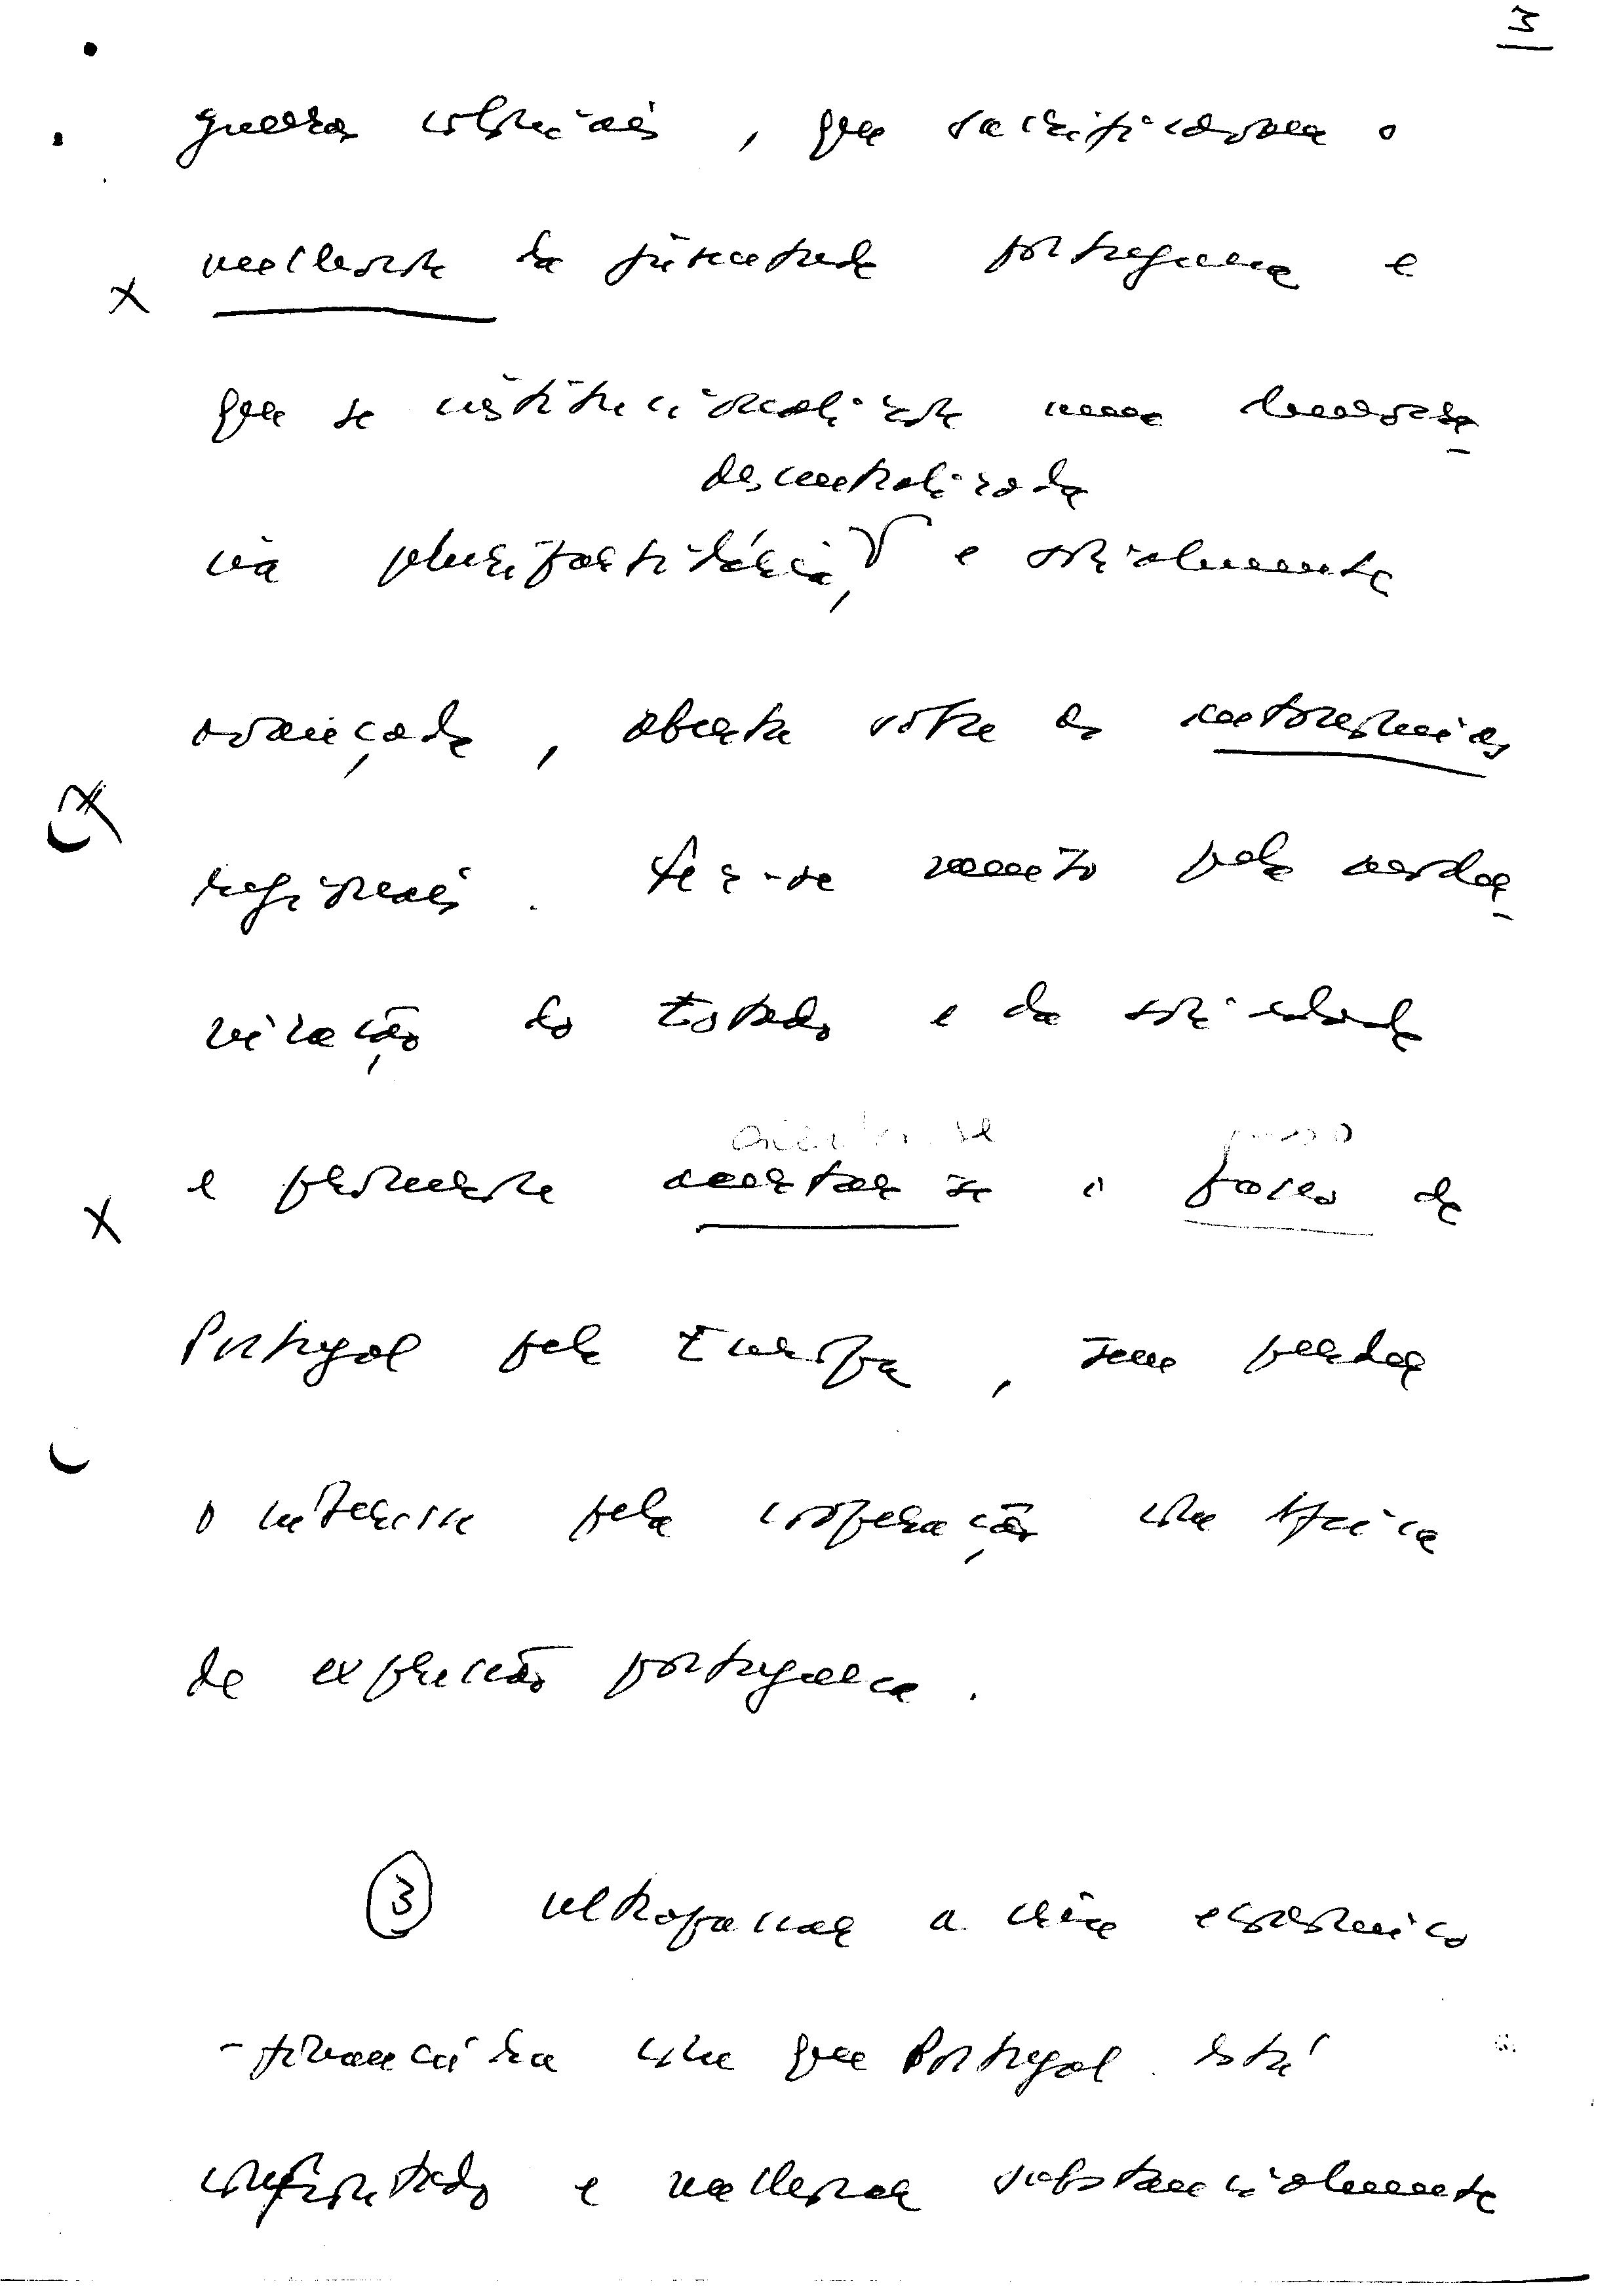 3
guerras coloniais, que sacrificavam o
melhor da juventude portuguesa e
que se institucionalizasse uma democra-
cia pluripartidária, descentralizada e socialmente
avançada, aberta sobre as autonomias
regionais. Fez-se muito pela moder-
nização do Estado e da sociedade
orientou-se passo
e promover a orientar-se o passo de
Portugal pela Europa, sem perder
o interesse pela cooperação com África
de expressão portuguesa.
3 ultrapassar a crise económico
-financeira com que Portugal está
confrontado e melhorar substancialmente